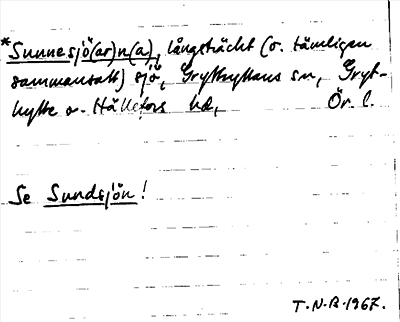 *Sunnesjö(ar)n(a), långsträckt (o. tämligen
sammansatt) sjö, Grythyttans sn, Gryt-
hytte o. Hällefors hd, Ör. l.
Se Sundsjön!
T.N.B. 1967.